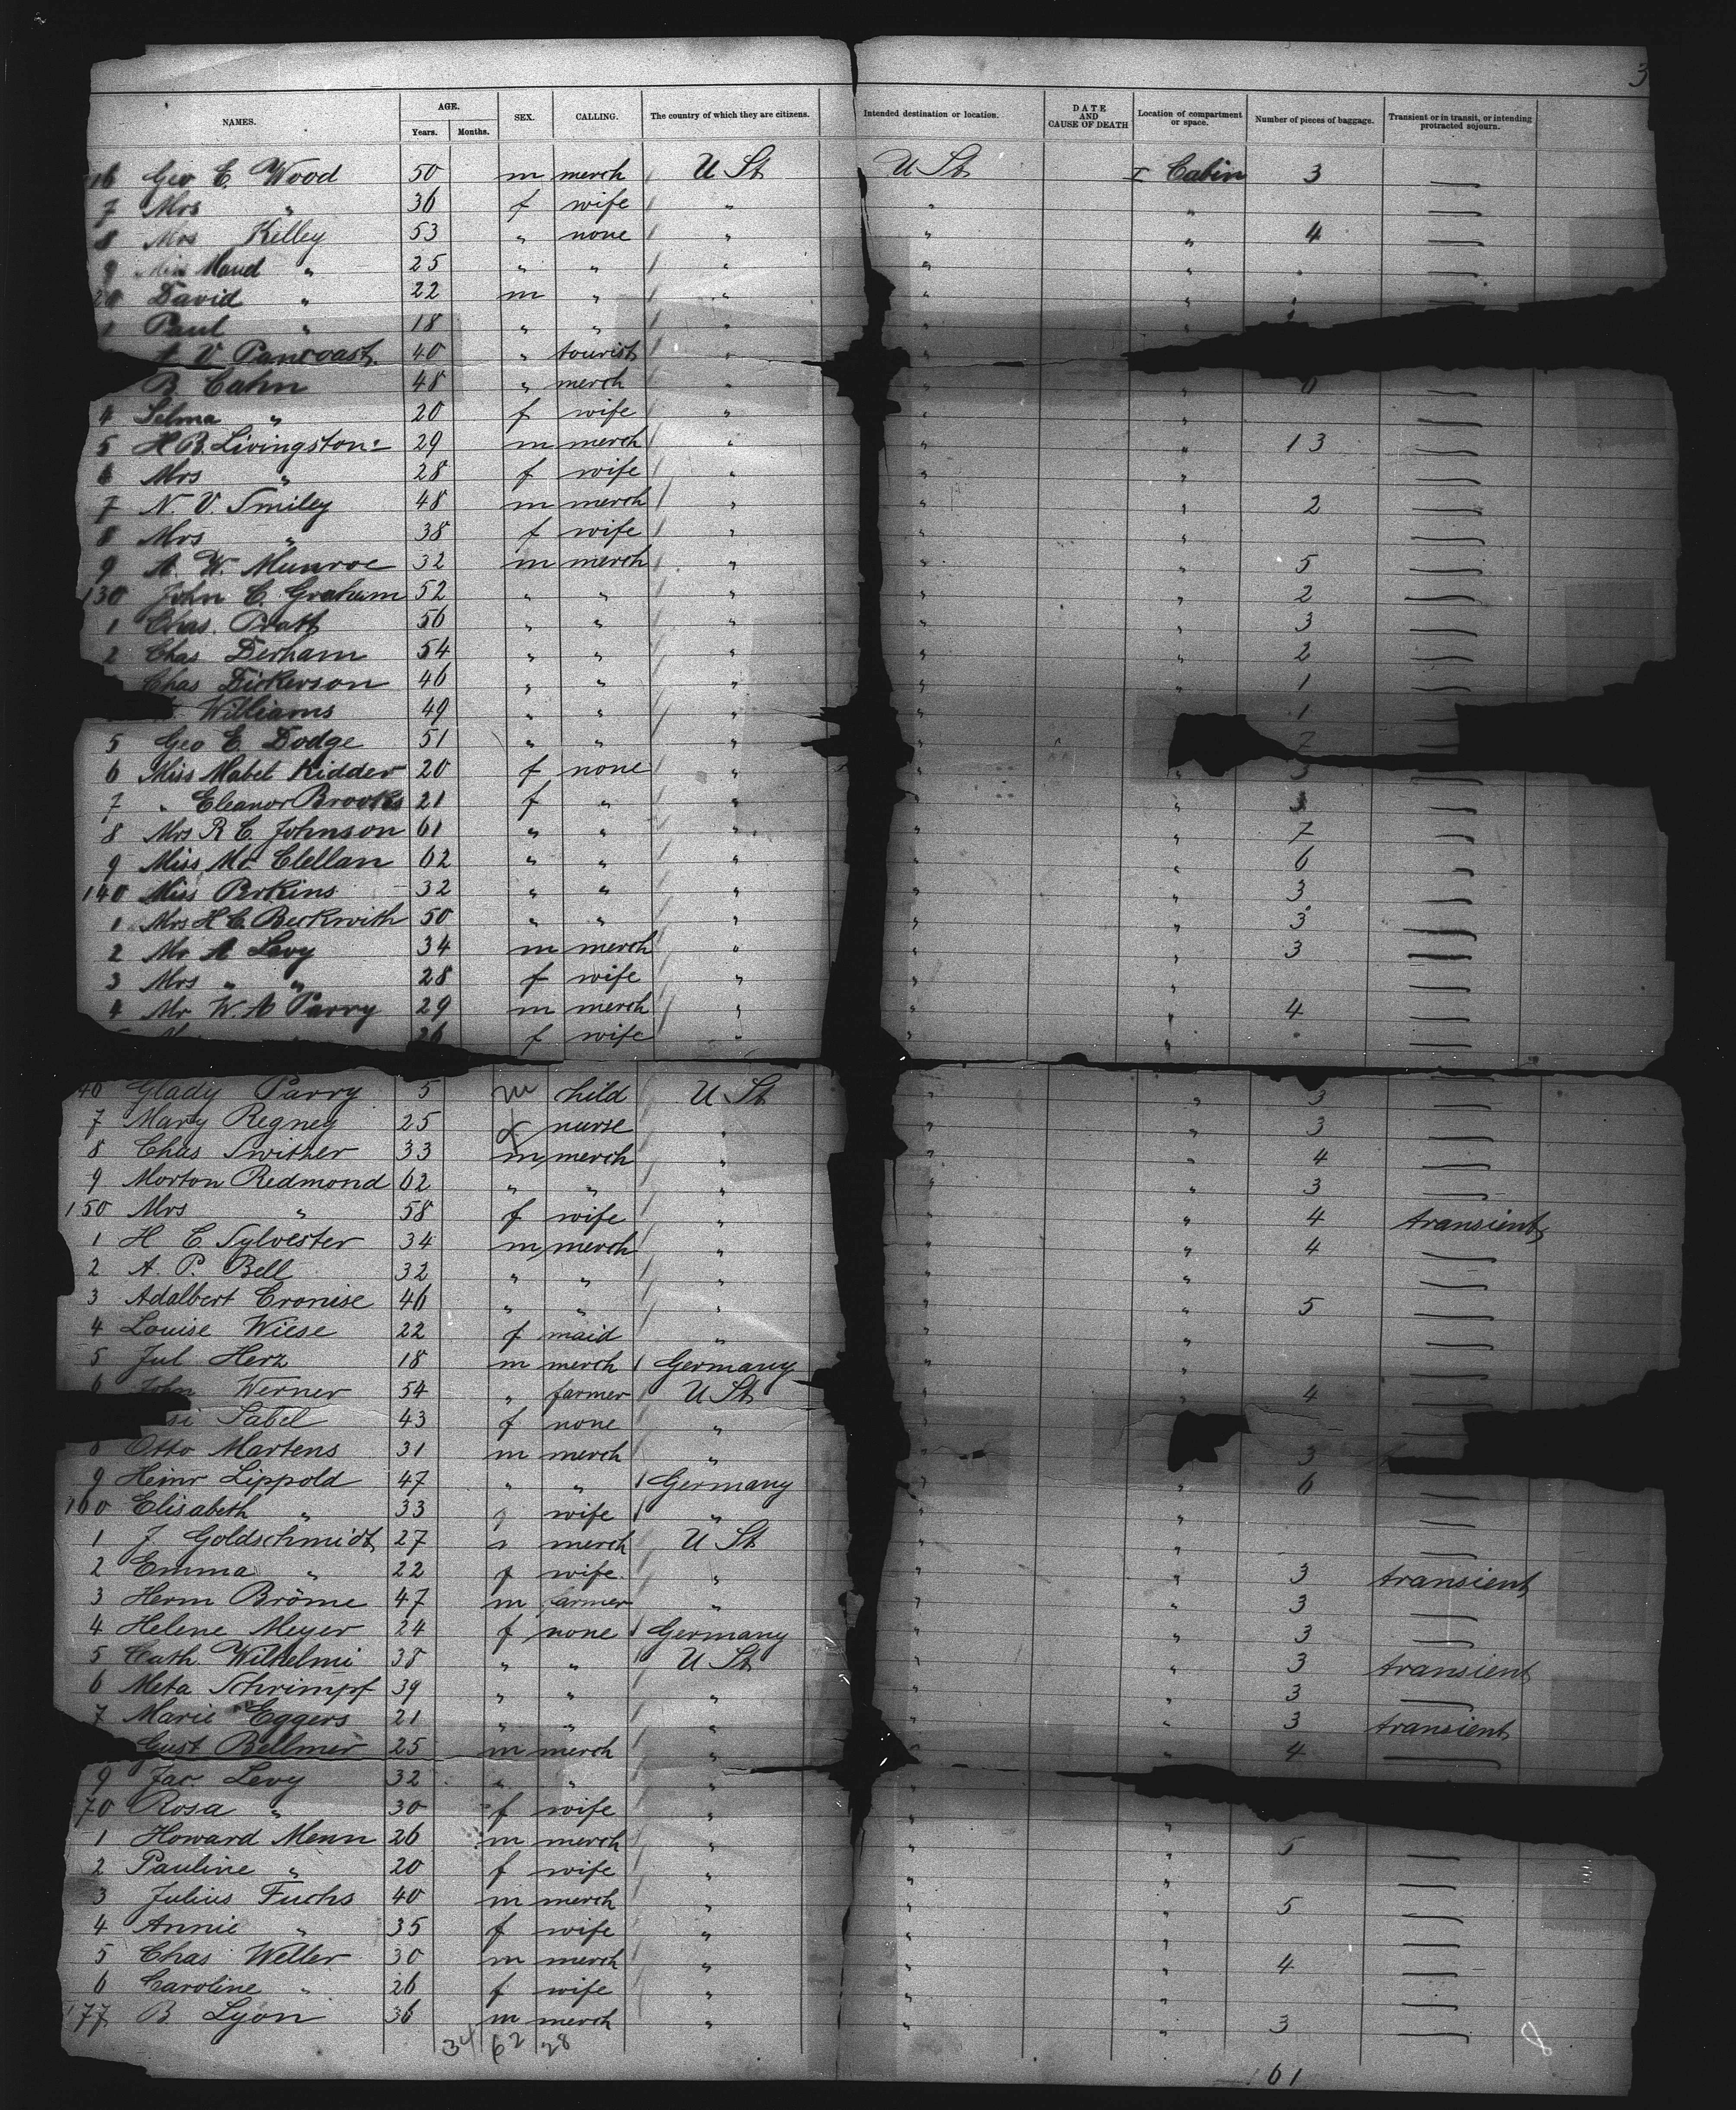 3
NAMES. AGE. Years. Months. SEX. CALLING. The country of which they are citizens. Intended destination or location. DATE AND CAUSE OF DEATH Location of compartment or space. Number of pieces of baggage. Transient or in transit, or intending protracted sojourn.
16 Geo E. Wood 50 m merch U St U St I Cabin 3 —
7 Mrs " 36 f wife " " " —
8 Mrs Kelley 53 " none " " " 4 —
9 Miss Maud " 25 " " " " " —
20 David " 22 m " " " " —
1 Paul " 18 " " " "
V Pancoast 40 " tourist " "
B Cahn 48 " merch " " " —
4 Selma " 20 f wife " " " —
5 H B. Livingston 29 m merch " " " 13 —
6 Mrs " 28 f wife " " " —
7 N. V. Smiley 48 m merch " " " 2 —
8 Mrs " 38 f wife " " " —
9 A. W. Munroe 32 m merch " " " 5 —
130 John C. Graham 52 " " " " " 2 —
1 Chas. Pratt 56 " " " " " 3 —
2 Chas Derham 54 " " " " " 2 —
Chas Dickerson 46 " " " " " 1 —
Williams 49 " " " " " 1
5 Geo E. Dodge 51 " " " " 7
6 Miss Mabel Kidder 20 f none " " " 3 —
7 " Eleanor Brooks 21 f " " " " 3 —
8 Mrs R C. Johnson 61 " " " " " 7 —
9 Miss Mc Clellan 62 " " " " " 6 —
140 Miss Perkins 32 " " " " " 3 —
1 Mrs H C. Beckwith 50 " " " " " 3 —
2 Mr A Levy 34 m merch " " " 3 —
3 Mrs " " 28 f wife " " " —
4 Mr W. A Parry 29 m merch " " " 4 —
26 f wife " " " —
46 Glady Parry 5 m child U St " " 3 —
7 Mary Regney 25 f nurse " " " 3 —
8 Chas Swither 33 m merch " " " 4 —
9 Morton Redmond 62 " " " " " 3 —
150 Mrs " 58 f wife " " " 4 transient
1 H C Sylvester 34 m merch " " " 4 —
2 A. P. Bell 32 " " " " " —
3 Adalbert Cronise 46 " " " " " 5 —
4 Louise Wiese 22 f maid " " " —
5 Jul Herz 18 m merch Germany " " —
6 John Werner 54 " farmer U St " " 4 —
Sabel 43 f none " "
8 Otto Martens 31 m merch " " 3
9 Heinr Lippold 47 " " Germany " " 6 —
160 Elisabeth " 33 f wife " " " —
1 J. Goldschmidt 27 merch U St " " —
2 Emma " 22 f wife " " " 3 transient
3 Herm Bröme 47 m farmer " " " 3 —
4 Helene Meyer 24 f none Germany " " 3 —
5 Cath. Wilhelmi 38 " " U St " " 3 transient
6 Meta Schrimpf 39 " " " " " 3 —
7 Marie Eggers 21 " " " " " 3 transient
Gust Bellmer 25 m merch " " " 4 —
9 Jac. Levy 32 " " " "
70 Rosa " 30 f wife " " "
1 Howard Menn 26 m merch " " " 5 —
2 Pauline " 20 f wife " " " —
3 Julius Fuchs 40 m merch " " " 5 —
4 Annie " 35 f wife " " " —
5 Chas Weller 30 m merch " " " 4 —
6 Caroline " 26 f wife " " " —
177 B Lyon 36 m merch " " " 3 —
34 62 28
8
161